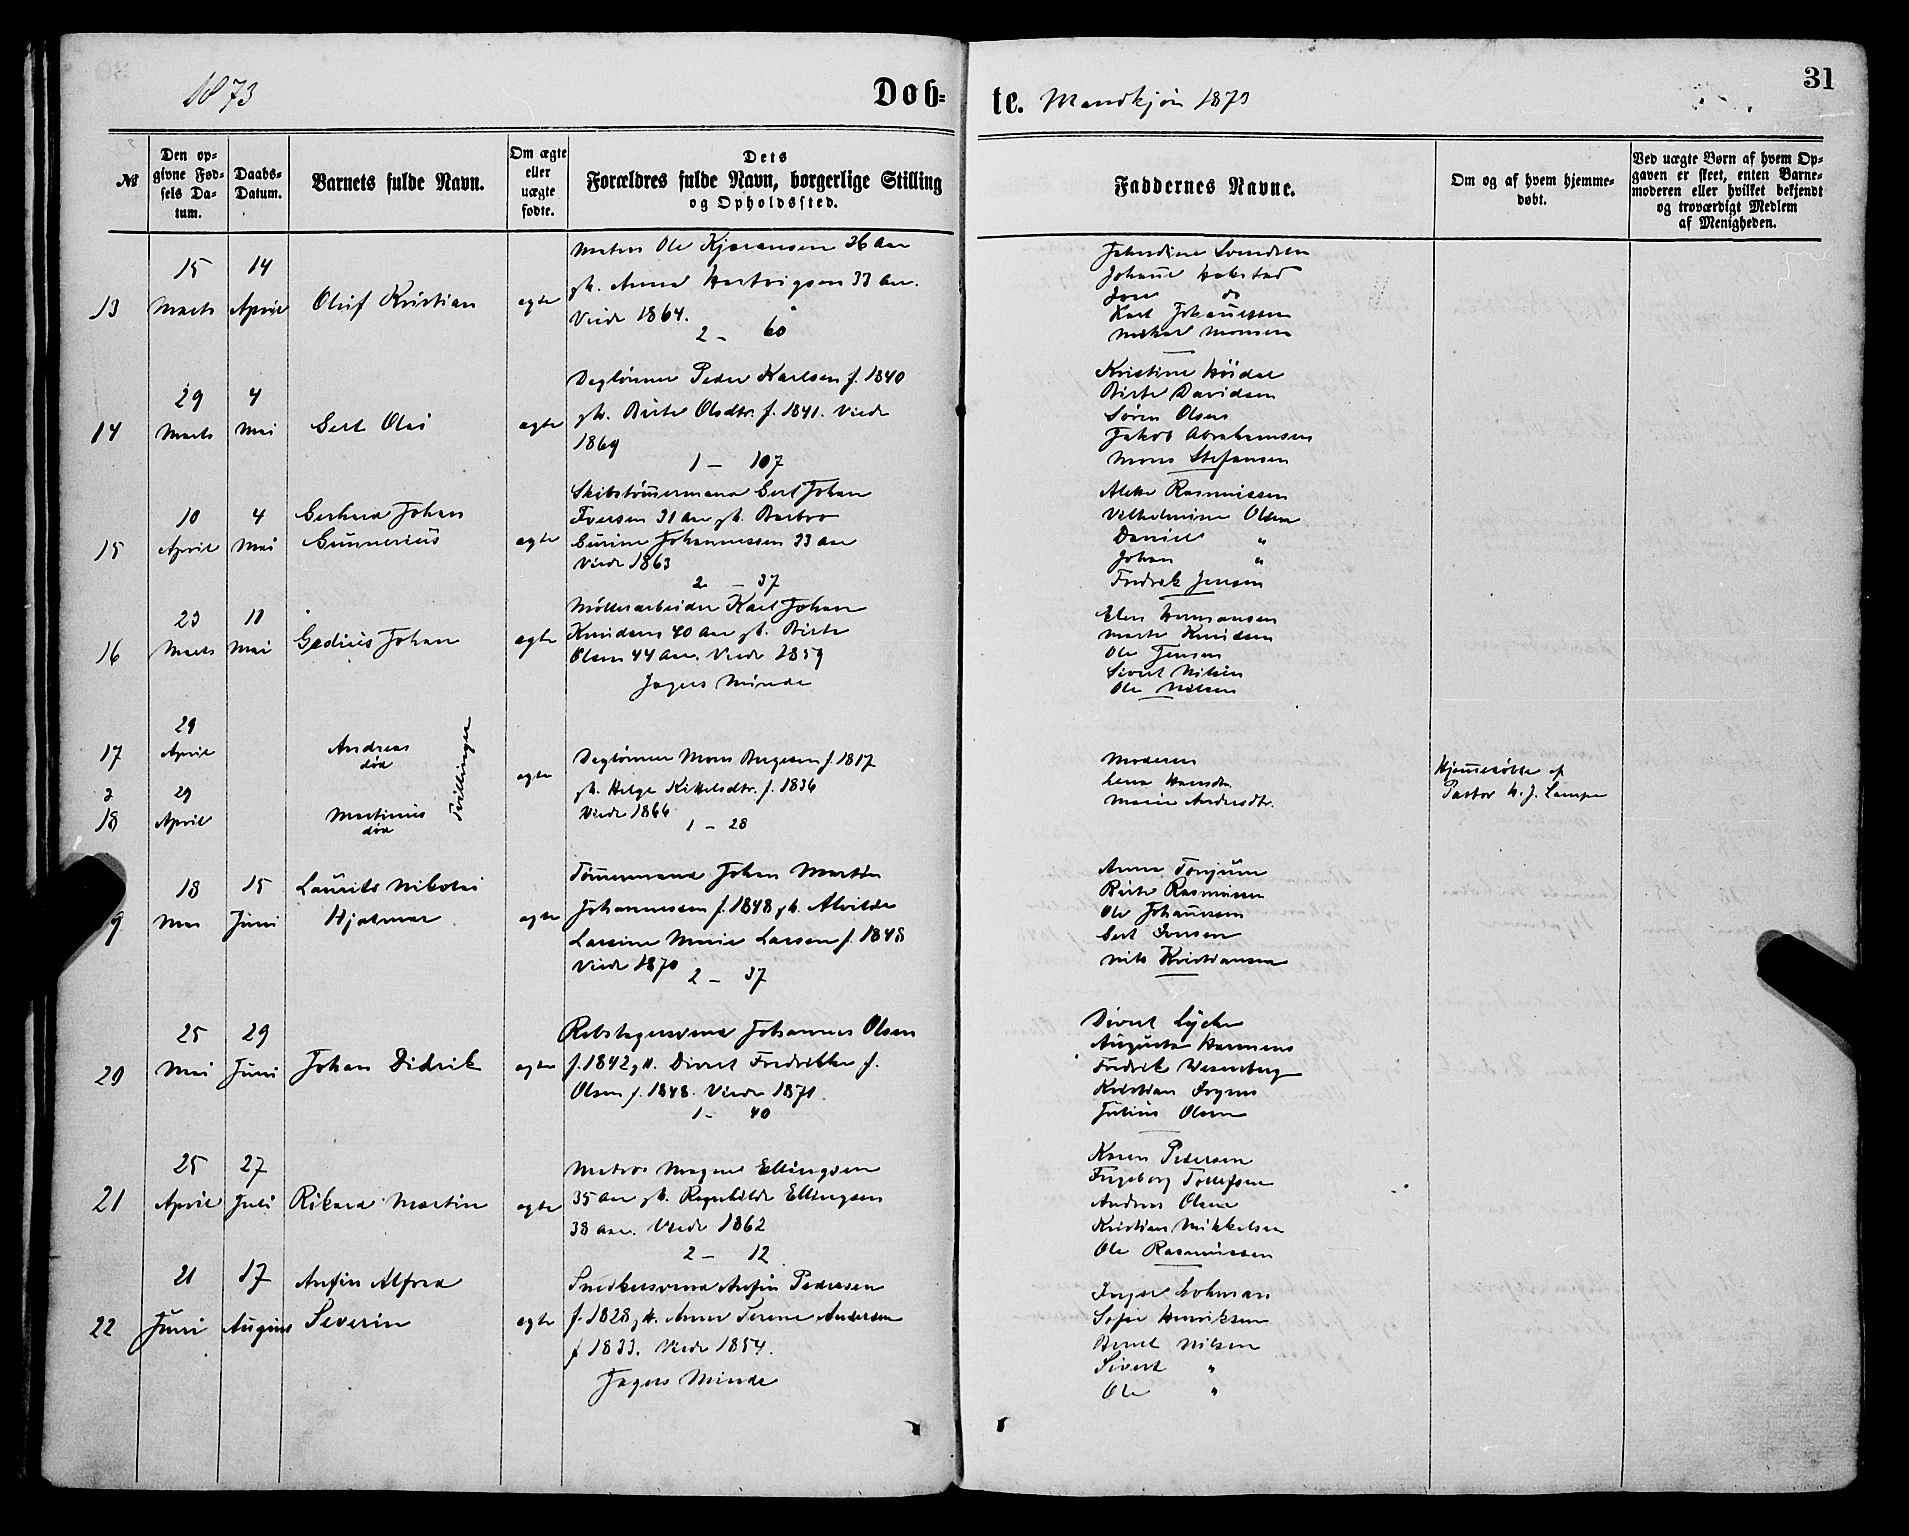 1873
Døb-
te. Mandkjøn 1873
31
№
Den op-
givne Fød-
sels Da-
tum.
Daabs-
Datum.
Barnets fulde Navn.
Om ægte
eller
uægte
fødte.
Dets
Forældres fulde Navn, borgerlige Stilling
og Opholdssted.
Faddernes Navne.
Om og af hvem hjemme-
døbt.
Ved uægte Børn af hvem Op-
gaven er skeet, enten Barne-
moderen eller hvilket bekjendt
og troværdigt Medlem
af Menigheden.
13
15
Marts
14
April
Oluf Kristian
ægte
Matros Ole 36 Aar
gh. Anna Hartvigsen 33 Aar.
Viede 1864.
2 - 60
Svendsen
Johanne Hokstad
do
Karl Johannessen
Mikael Monsen
14
29
Marts
4
Mai
Gert Olai
ægte
Daglønner Peder Karlsen f. 1840
gh. Birte Olsdtr. f. 1841. Viede
1869
1 - 107
Kristine
Birte Davidsen
Søren Olsen
Jakob Abrahamsen
Mons Stefansen
15
10
April
4
Mai
Gerhard Johan
Gunnerius
ægte
Skibstømmermand Gert Johan
Iversen 31 Aar gh. Barbro
Gurine Johannessen 33 Aar
Viede 1863
2 - 37
Rasmussen
Vilhelmine Olsen
Daniel "
Johan "
Fredrik Jensen
16
23
Marts
11
Mai
Johan
ægte
Møllearbeider Karl Johan
Knudsen 40 Aar gh. Birte
Olsen 44 Aar. Viede 1859
Jægers Minde
Elen Hermansen
Marte Knudsen
Ole Jensen
Sivert Nilsen
Ole Nilsen
17
29
April
Andreas
død
Tvillinger
ægte
Daglønner Mons Birgesen f. 1817
gh. Helge Kittelsdtr. f. 1836
Viede 1866
1 - 28
Moderen
Lena Hansdtr.
Marie Andersdtr.
Hjemmedøbte af
Pastor H. J. Lampe
18
29
April
Martinius
død
18
Mai
15
Juni
Laurits Nikolai
Hjalmar
ægte
Tømmermand Johan Martin
Johannessen f. 1848 gh. Alvilde
Larsine Marie Larsen f. 1848
Viede 1870
2 - 37
Anna Tonjum
Birte Rasmussen
Ole Johannessen
Gert Iversen
Nils Kristiansen
20
25
Mai
29
Juni
Johan Didrik
ægte
Rebslagersvend Johannes Olsen
f. 1842 gh. Divert Fredrikke f.
Olsen f. 1848. Viede 1871
1 - 40
Divert Lycke
Augusta Harmens
Fredrik Wesenberg
Kristian
Julius Olsen
21
25
April
27
Juli
Rikard Martin
ægte
Matros Magne Ellingsen
35 Aar gh. Ragnhilde Ellingsen
38 Aar. Viede 1862
2 - 12
Karen Pedersen
Ingeborg Tollefsen
Andreas Olsen
Kristian Mikkelsen
Ole Rasmussen
22
21
Juni
17
August
Anfin Alfred
Severin
ægte
Snedkersvend Anfin Pedersen
f. 1828 gh. Anna Serene Andersen
f 1833. Viede 1854.
Jægers Minde
Inger Lohman
Sofie Henriksen
Bernt Nilsen
Sivert "
Ole "